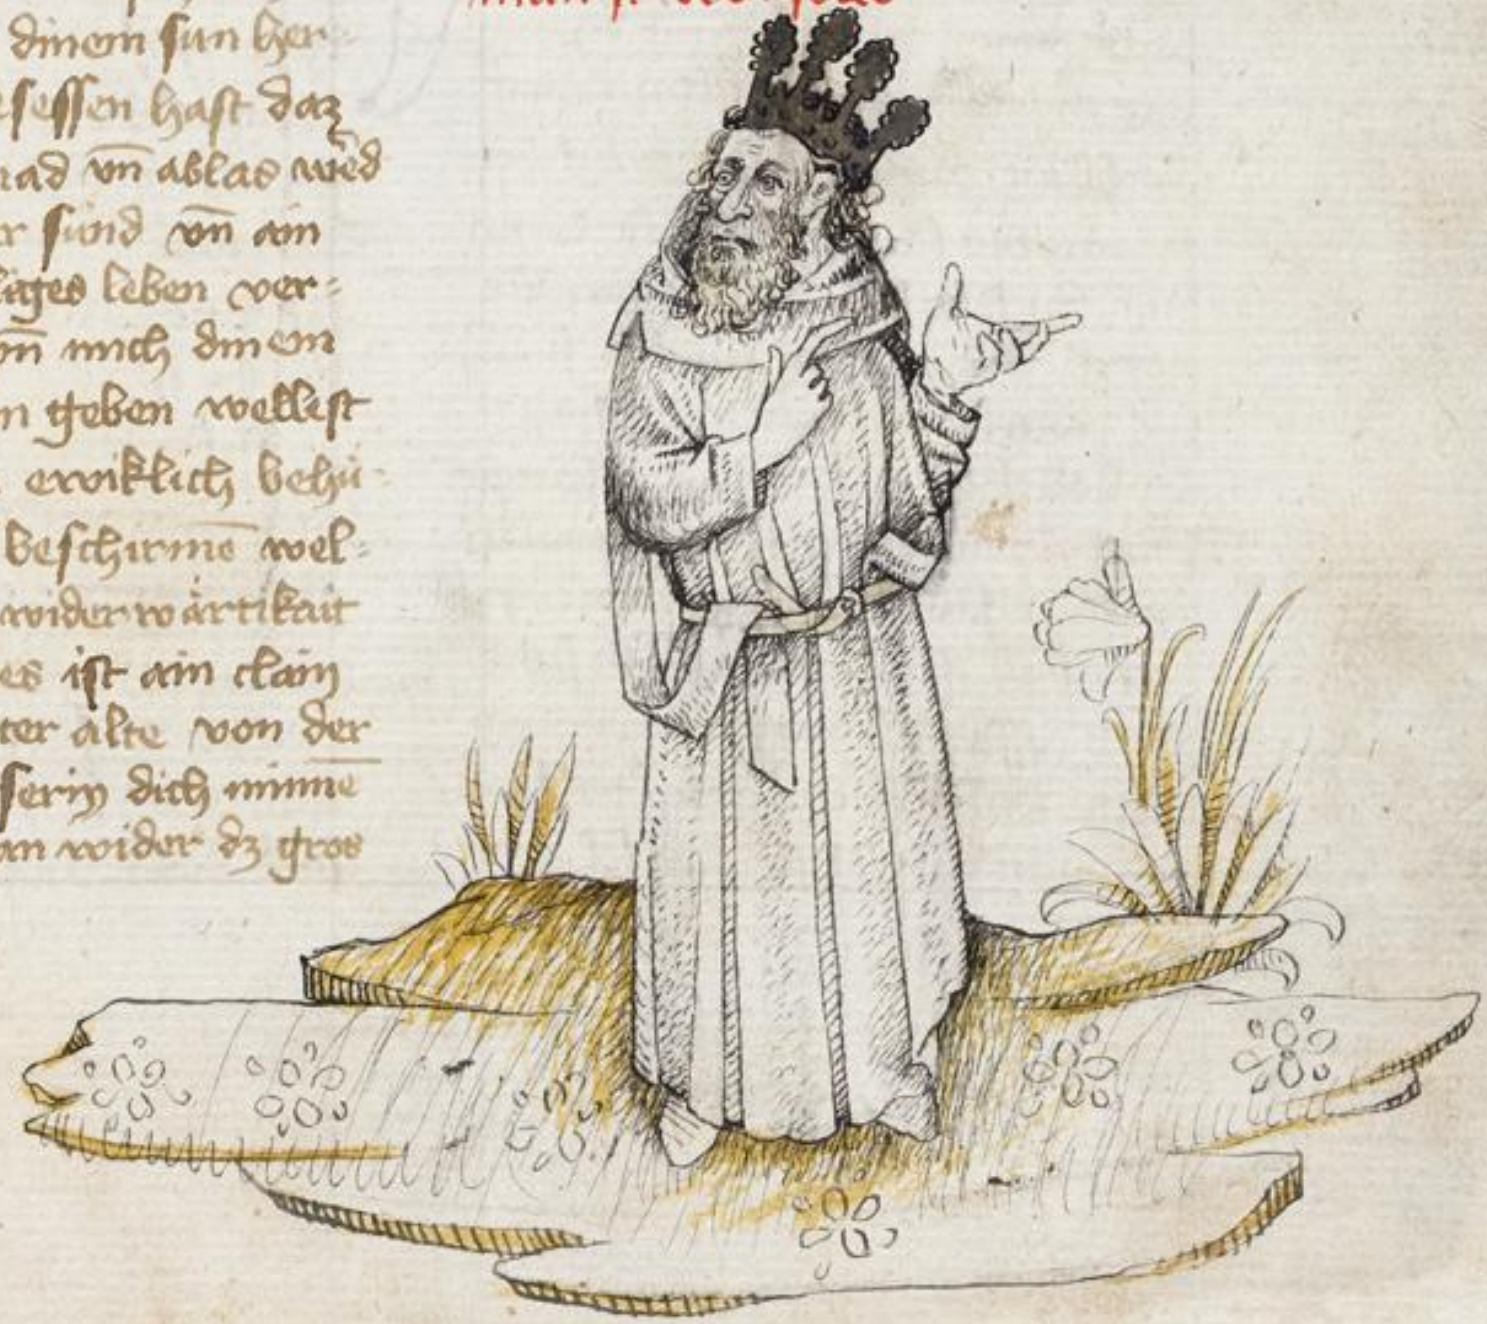 dinem sun her
sessen hast daz
nad vn̄ ablas wēd
r sünd vn̄ ain
liges leben ver=
vn̄ mich dinem
n geben wellist
ewiklich behü
beschirmē wel=
widerwärtikait
es ist ain clain
ter alte von der
serin dich minnē
an wider dz gros